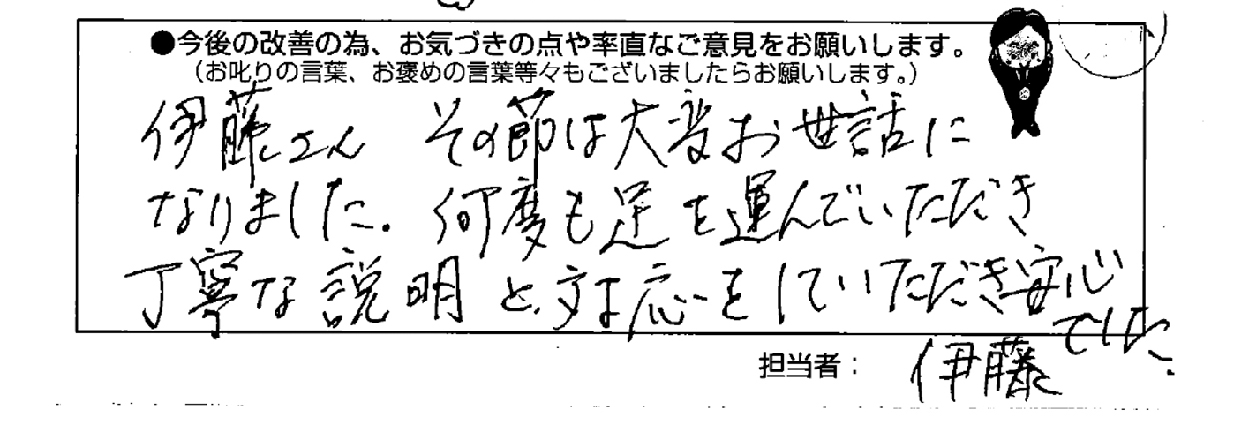 ●今後の改善の為、お気づきの点や率直なご意見をお願いします。
（お叱りの言葉、お褒めの言葉等々もございましたらお願いします。）
伊藤さん その節は大変お世話に
なりました。何度も足を運んでいただき
丁寧な説明と、対応をしていただき安心
でした。
担当者： 伊藤